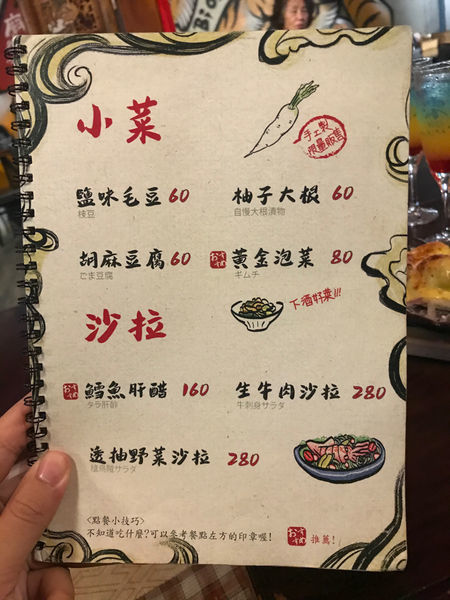 小菜
手工製
限量販售
鹽味毛豆 60
枝豆
柚子大根 60
自慢大根漬物
胡麻豆腐 60
ごま豆腐
おすすめ
黃金泡菜 80
キムチ
沙拉
下酒好菜!!!
おすすめ
鱈魚肝醋 160
タラ肝酢
生牛肉沙拉 280
牛刺身サラダ
透抽野菜沙拉 280
<點餐小技巧>
不知道吃什麼?可以參考餐點左方的印章喔!
おすすめ
推薦!